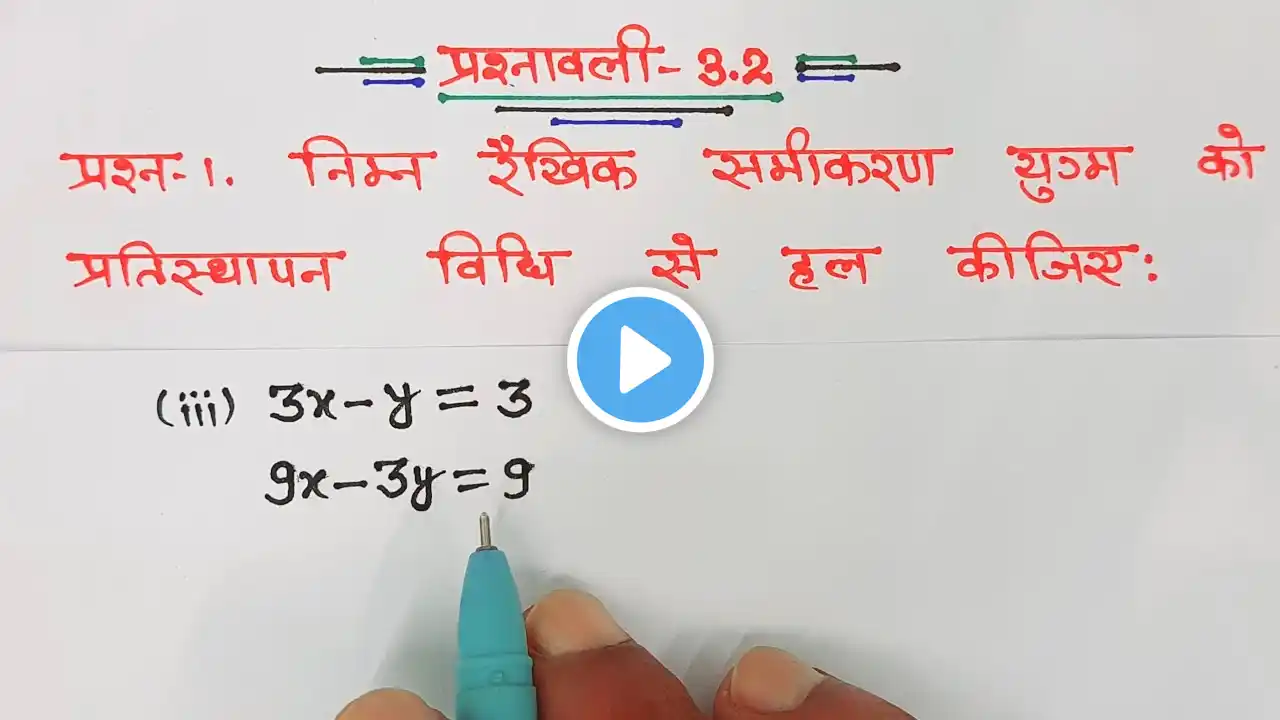 प्रश्नावली- 3.2
प्रश्न-1. निम्न रैखिक समीकरण युग्म को
प्रतिस्थापन विधि से हल कीजिए:
(iii) 3x-y=3
9x-3y=9